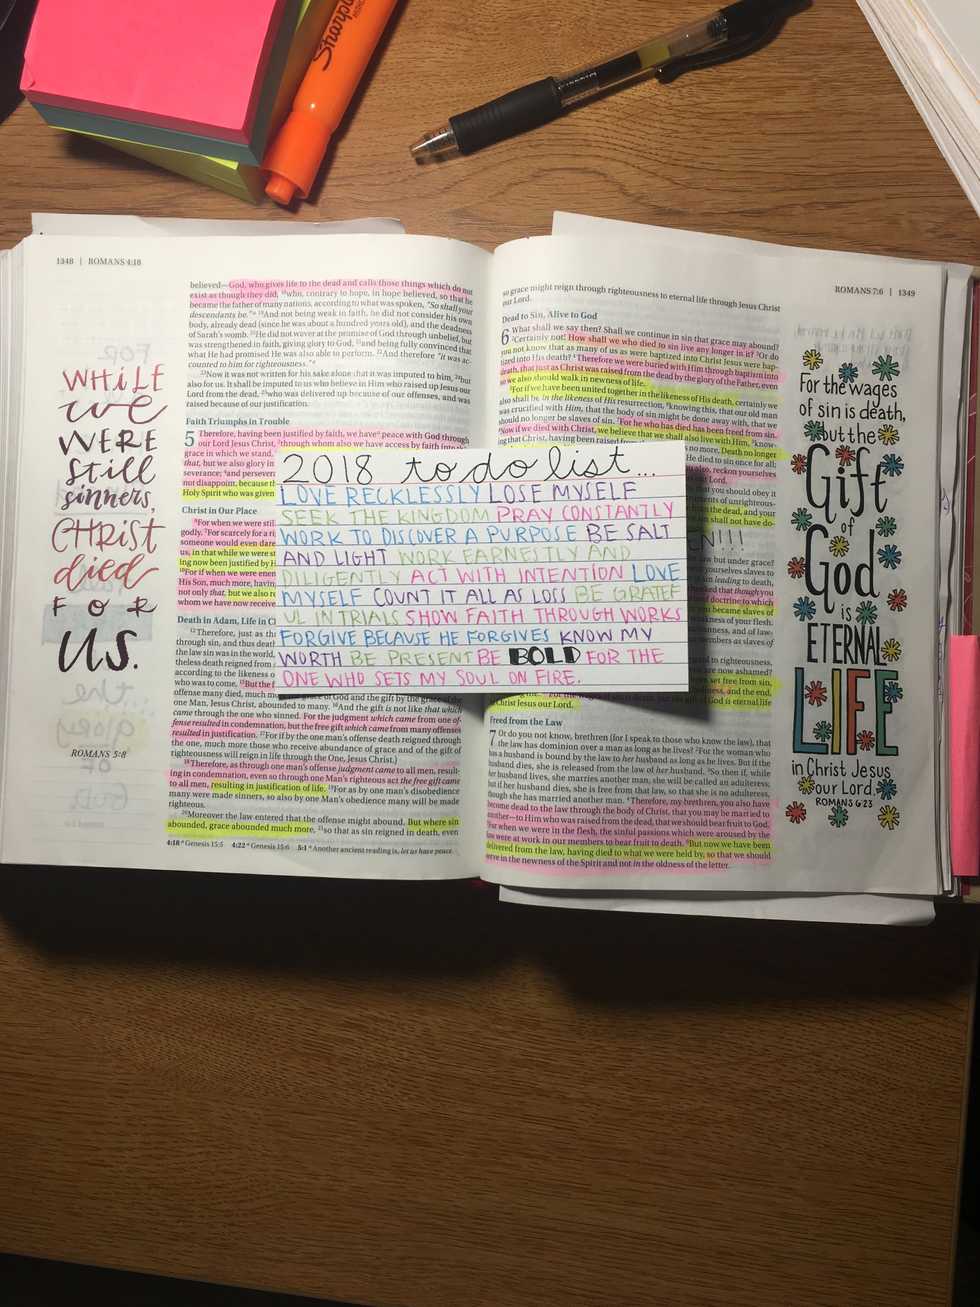 Sharpie
1348 | ROMANS 4:18
believed—God, who gives life to the dead and calls those things which do not
exist as though they did; 18who, contrary to hope, in hope believed, so that he
became the father of many nations, according to what was spoken, "So shall your
descendants be." 19And not being weak in faith, he did not consider his own
body, already dead (since he was about a hundred years old), and the deadness
of Sarah's womb. 20He did not waver at the promise of God through unbelief, but
was strengthened in faith, giving glory to God, 21and being fully convinced that
what He had promised He was also able to perform. 22And therefore "it was ac-
counted to him for righteousness."
23Now it was not written for his sake alone that it was imputed to him, 24but
also for us. It shall be imputed to us who believe in Him who raised up Jesus our
Lord from the dead, 25who was delivered up because of our offenses, and was
raised because of our justification.
Faith Triumphs in Trouble
5 Therefore, having been justified by faith, we have peace with God through
our Lord Jesus Christ, 2through whom also we have access by faith into
grace in which we stand,
that, but we also glory in
severance; 4and persever
not disappoint, because th
Holy Spirit who was given
Christ in Our Place
6For when we were stil
godly. 7For scarcely for a ri
someone would even dare
us, in that while we were s
ing now been justified by H
10For if when we were enem
His Son, much more, having
not only that, but we also re
whom we have now receive
Death in Adam, Life in C
12Therefore, just as th
through sin, and thus death
the law sin was in the world,
theless death reigned from
according to the likeness o
was to come. 15But the f
offense many died, much m
one Man, Jesus Christ, abounded to many. 16And the gift is not like that which
came through the one who sinned. For the judgment which came from one of-
fense resulted in condemnation, but the free gift which came from many offenses
resulted in justification. 17For if by the one man's offense death reigned through
the one, much more those who receive abundance of grace and of the gift of
righteousness will reign in life through the One, Jesus Christ.)
18Therefore, as through one man's offense judgment came to all men, result-
ing in condemnation, even so through one Man's righteous act the free gift came
to all men, resulting in justification of life. 19For as by one man's disobedience
many were made sinners, so also by one Man's obedience many will be made
righteous.
20Moreover the law entered that the offense might abound. But where sin
abounded, grace abounded much more, 21so that as sin reigned in death, even
4:18 Genesis 15:5 4:22 Genesis 15:6 5:1 Another ancient reading is, let us have peace.
WHiLE
we
WERE
still
sinners,
CHRIST
died
FOR
US.
ROMANS 5:8
2018 to do list...
LOVE RECKLESSLY LOSE MYSELF
SEEK THE KINGDOM PRAY CONSTANTLY
WORK TO DISCOVER A PURPOSE BE SALT
AND LIGHT WORK EARNESTLY AND
DILIGENTLY ACT WITH INTENTION LOVE
MYSELF COUNT IT ALL AS LOSS BE GRATEF
UL IN TRIALS SHOW FAITH THROUGH WORKS
FORGIVE BECAUSE HE FORGIVES KNOW MY
WORTH BE PRESENT BE BOLD FOR THE
ONE WHO SETS MY SOUL ON FIRE.
ROMANS 7:6 | 1349
so grace might reign through righteousness to eternal life through Jesus Christ
our Lord.
Dead to Sin, Alive to God
6 What shall we say then? Shall we continue in sin that grace may abound?
2Certainly not! How shall we who died to sin live any longer in it? 3Or do
you not know that as many of us as were baptized into Christ Jesus were bap-
tized into His death? 4Therefore we were buried with Him through baptism into
death, that just as Christ was raised from the dead by the glory of the Father, even
so we also should walk in newness of life.
5For if we have been united together in the likeness of His death, certainly we
also shall be in the likeness of His resurrection, 6knowing this, that our old man
was crucified with Him, that the body of sin might be done away with, that we
should no longer be slaves of sin. 7For he who has died has been freed from sin.
8Now if we died with Christ, we believe that we shall also live with Him, 9know-
ing that Christ, having been raised
no more. Death no longer
He died to sin once for all;
reckon yourselves
our Lord.
that you should obey it
the dead, and your
an shall not have do-
EN!!!
law but under grace?
yourselves slaves to
sin leading to death,
that though you
doctrine to which
you became slaves of
of your flesh:
members as slaves of
to righteousness,
are now ashamed?
set free from sin,
and the end,
gift of God is eternal life
Christ Jesus our Lord.
Freed from the Law
7 Or do you not know, brethren (for I speak to those who know the law), that
the law has dominion over a man as long as he lives? 2For the woman who
has a husband is bound by the law to her husband as long as he lives. But if the
husband dies, she is released from the law of her husband. 3So then if, while
her husband lives, she marries another man, she will be called an adulteress;
but if her husband dies, she is free from that law, so that she is no adulteress,
though she has married another man. 4Therefore, my brethren, you also have
become dead to the law through the body of Christ, that you may be married to
another—to Him who was raised from the dead, that we should bear fruit to God.
5For when we were in the flesh, the sinful passions which were aroused by the
law were at work in our members to bear fruit to death. 6But now we have been
delivered from the law, having died to what we were held by, so that we should
serve in the newness of the Spirit and not in the oldness of the letter.
For the wages
of sin is death,
but the
Gift
of
God
is
ETERNAL
LIFE
in Christ Jesus
our Lord.
ROMANS 6:23